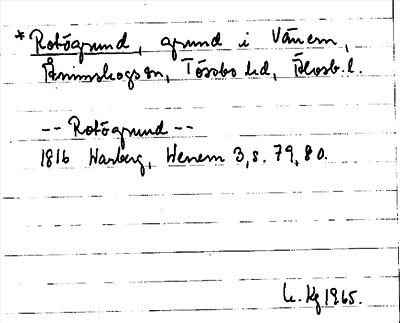 * Rotögrund, grund i Vänern,
Ånimskogs sn, Tössbo hd, Älvsb. l.
-- Rotögrund --
1816 Warberg, Wenern 3, s. 79, 80.
Kg 1965.